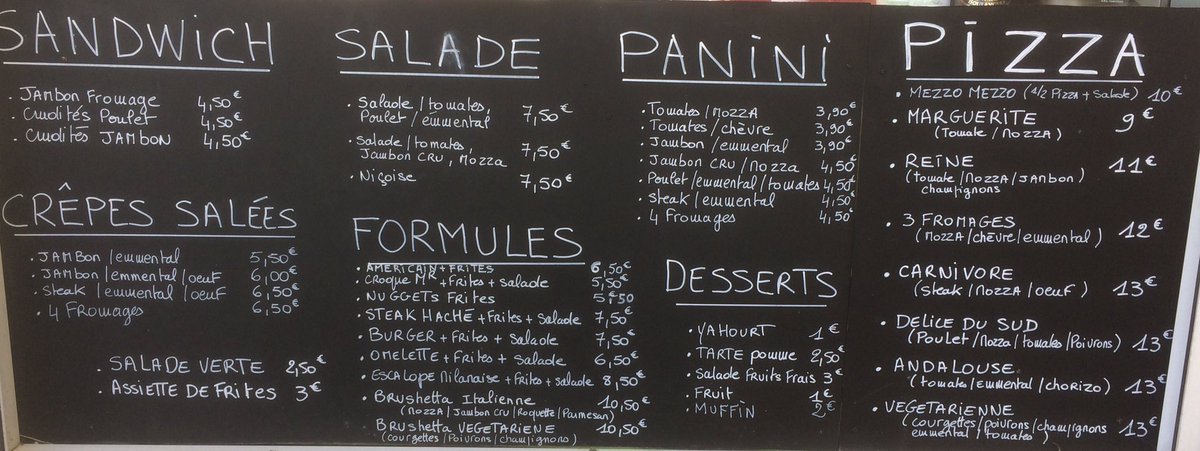 SANDWICH
. JAMBON FROMAGE 4,50€
. CRUDITÉS POULET 4,50€
. CRUDITÉS JAMBON 4,50€
CRÊPES SALÉES
. JAMBON/emmental 5,50€
. JAMBON/emmental/oeuf 6,00€
. Steak/emmental/oeuf 6,50€
. 4 FROMAGES 6,50€
. SALADE VERTE 2,50€
. ASSIETTE DE FRITES 3€
SALADE
. Salade/tomates,
Poulet/emmental 7,50€
. Salade/tomates,
Jambon CRU, MOZZA 7,50€
. Niçoise 7,50€
FORMULES
. AMERICAIN + FRITES 6,50€
. CROQUE Mr + FRITES + Salade 5,50€
. NUGGETS FRITES 5€50
. STEAK HACHÉ + FRITES + Salade 7,50€
. BURGER + FRITES + Salade 7,50€
. OMELETTE + FRITES + Salade 6,50€
. ESCALOPE Milanaise + FRITES + Salade 8,50€
. BRUSHETTA ITALIENNE 10,50€
(MOZZA/Jambon CRU/Roquette/Parmesan)
. BRUSHETTA VEGETARIENE 10,50€
(courgettes/Poivrons/champignons)
PANINI
. Tomates/MOZZA 3,90€
. Tomates/chèvre 3,90€
. Jambon/emmental 3,90€
. Jambon CRU/MOZZA 4,50€
. Poulet/emmental/tomates 4,50€
. Steak/emmental 4,50€
. 4 Fromages 4,50€
DESSERTS
. YAHOURT 1€
. TARTE pomme 2,50€
. Salade FRUITS FRAIS 3€
. FRUIT 1€
. MUFFIN 2€
PIZZA
. MEZZO MEZZO (1/2 Pizza + Salade) 10€
. MARGUERITE 9€
(Tomate/MOZZA)
. REINE 11€
(tomate/MOZZA/JAMBON)
champignons
. 3 FROMAGES 12€
(MOZZA/chèvre/emmental)
. CARNIVORE 13€
(Steak/MOZZA/oeuf)
. DELICE DU SUD 13€
(Poulet/Mozza/tomates/Poivrons)
. ANDALOUSE 13€
(tomates/emmental/chorizo)
. VEGETARIENNE 13€
(courgettes/poivrons/champignons
emmental/tomates)